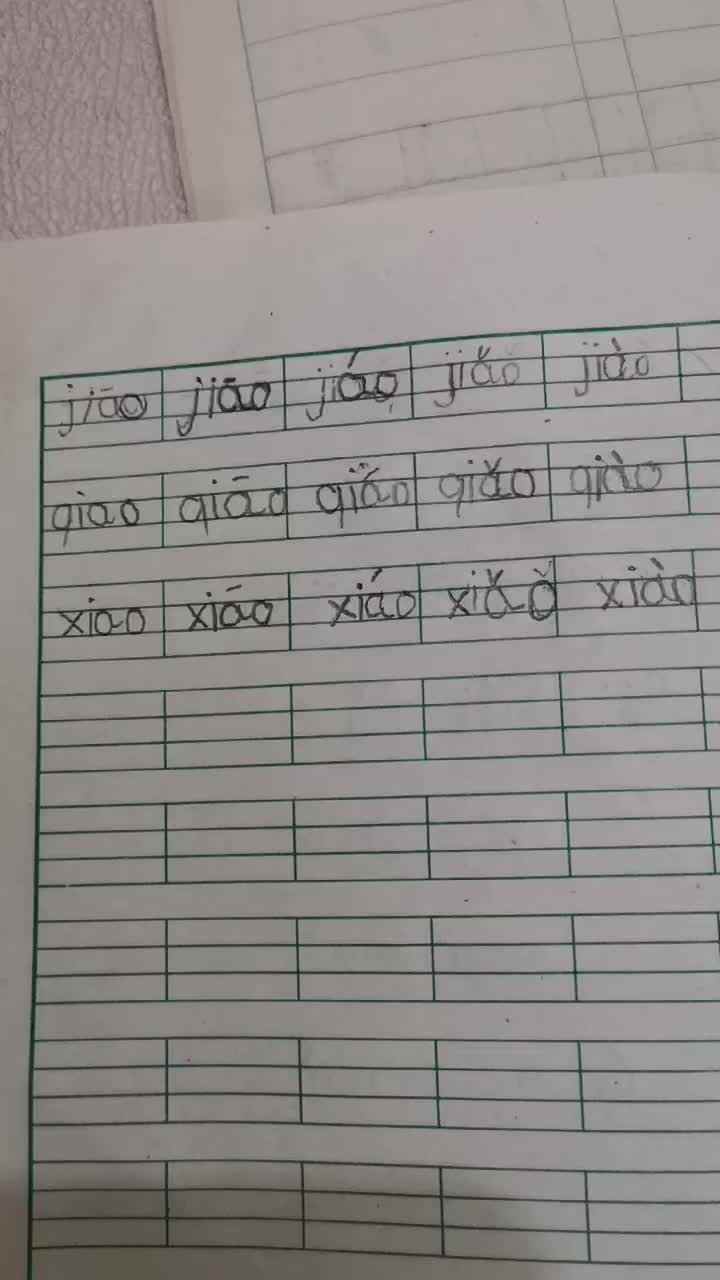 jiāo jiāo jiáo jiǎo jiào
qiao qiāo qiáo qiǎo qiào
xiao xiāo xiáo xiǎǒ xiào